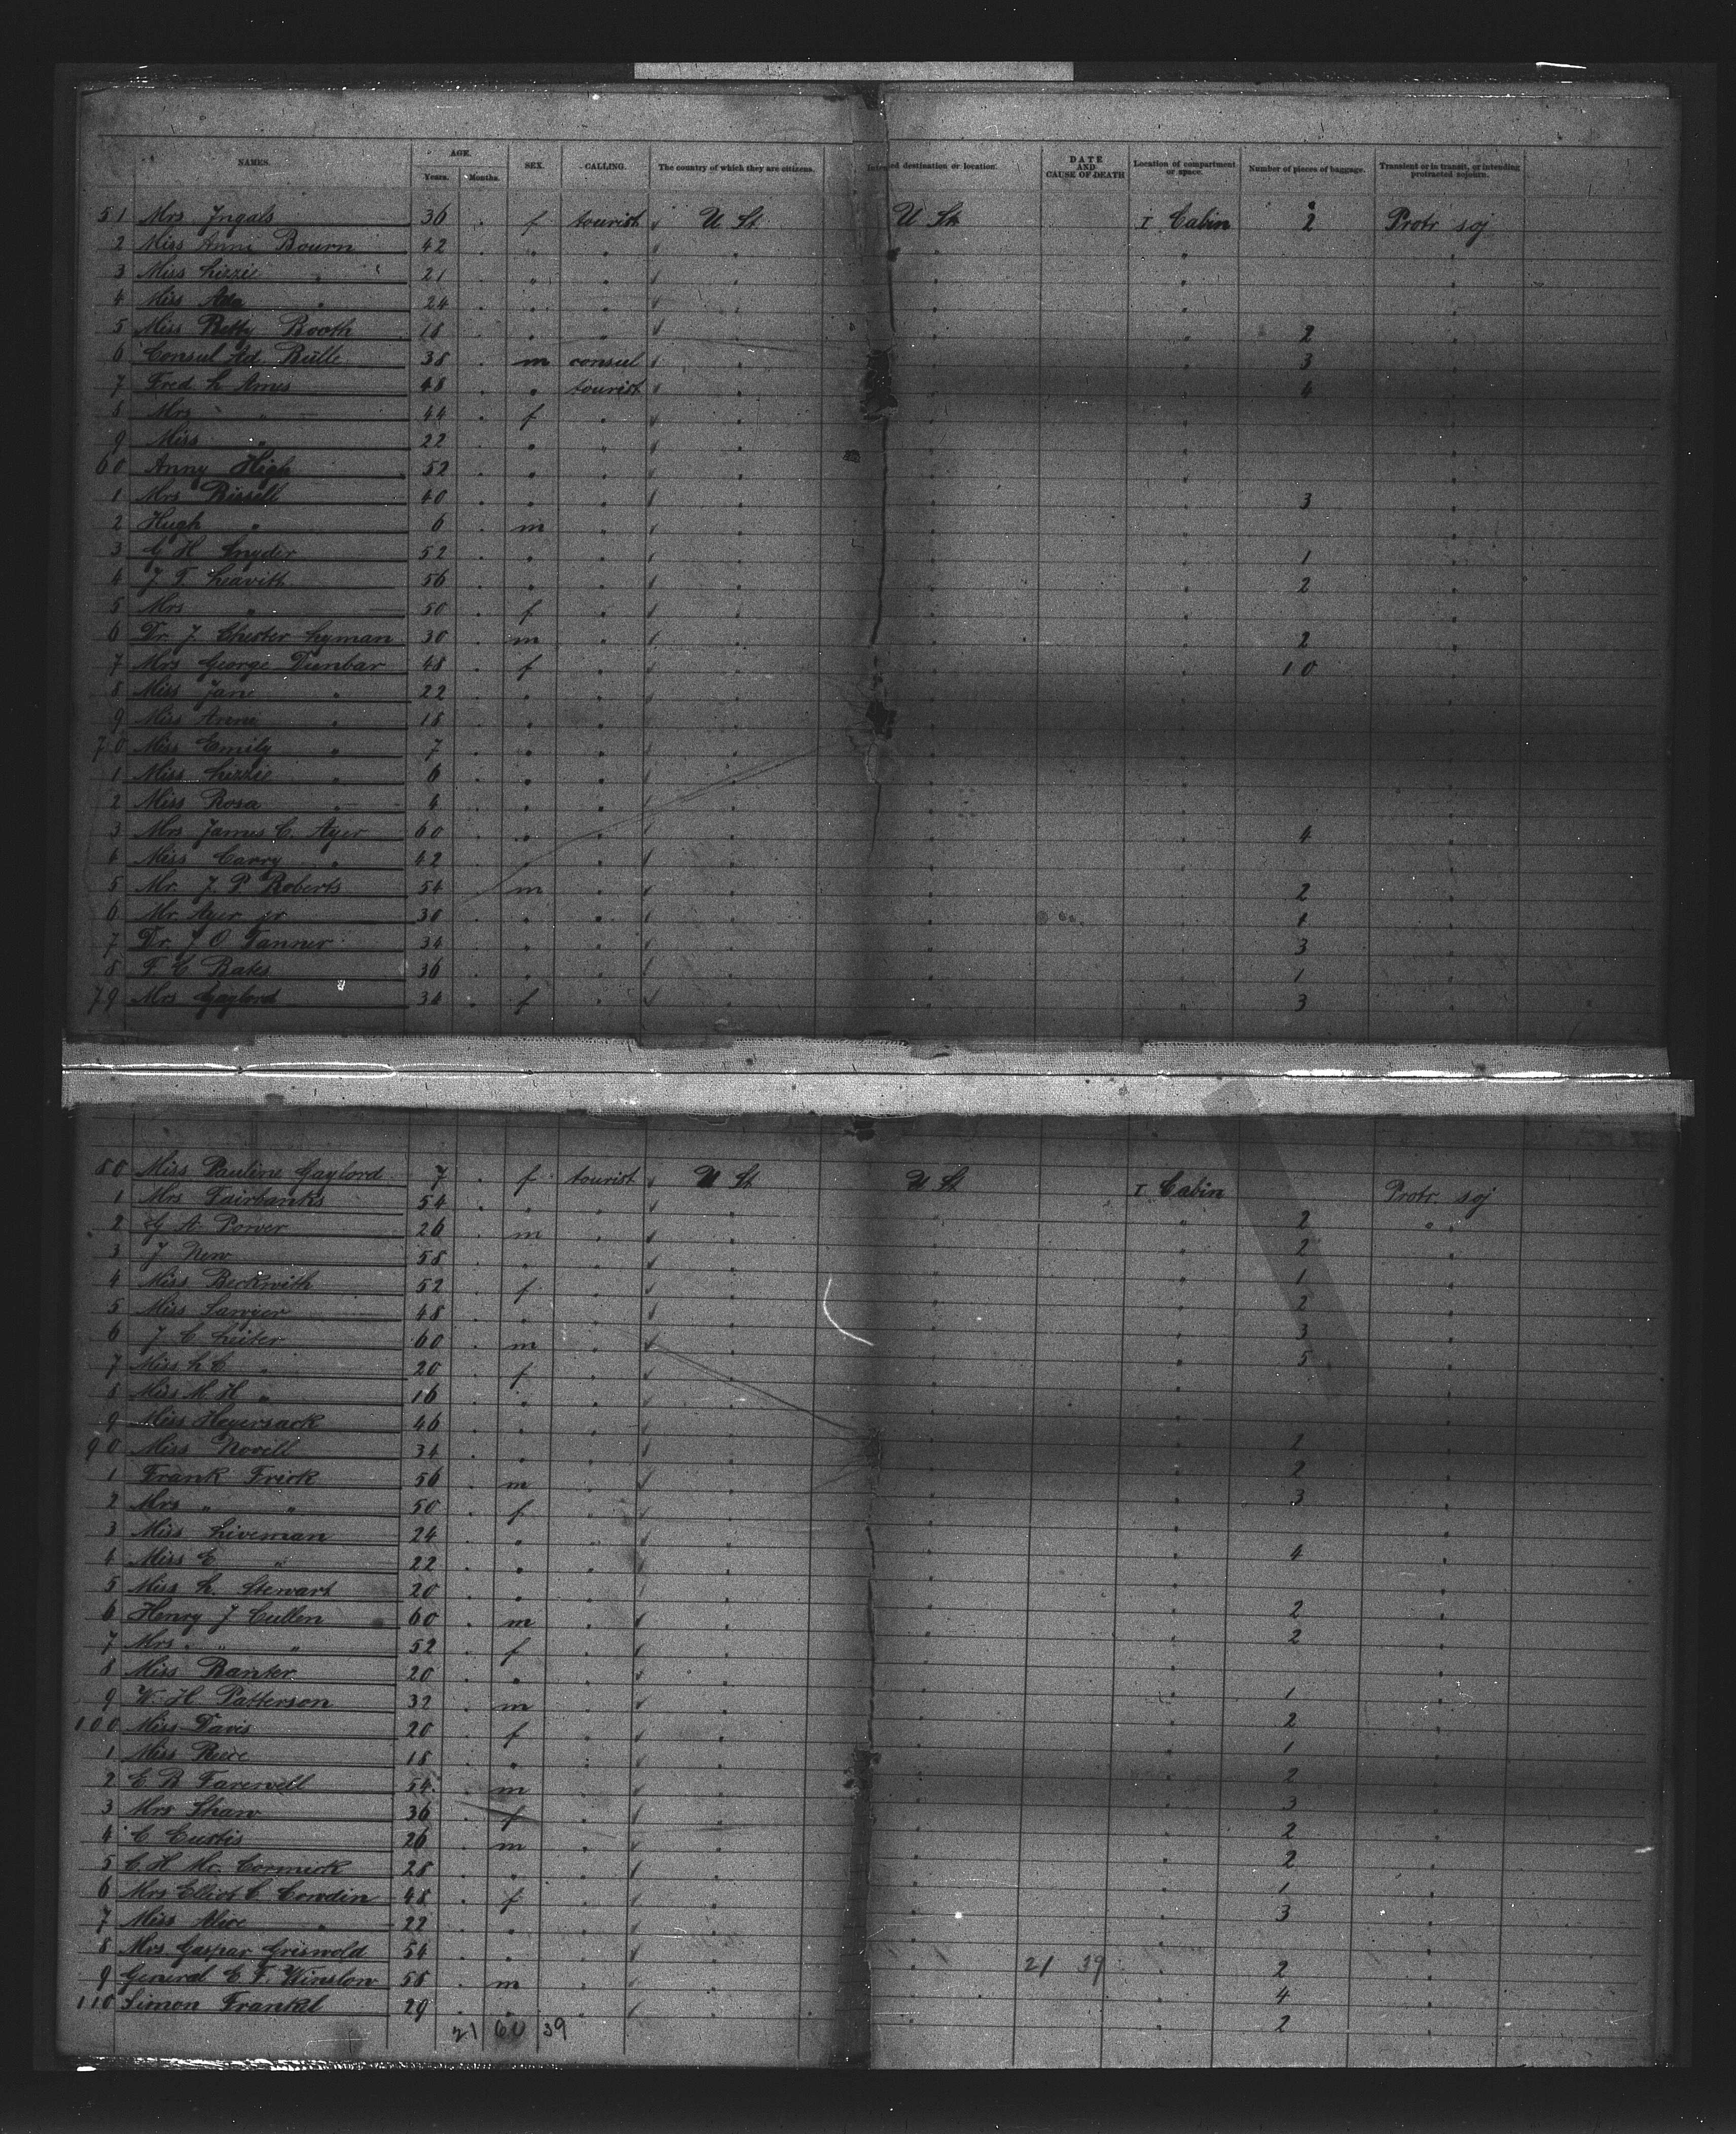 NAMES. AGE. Years. Months. SEX. CALLING. The country of which they are citizens. Intended destination or location. DATE AND CAUSE OF DEATH Location of compartment or space. Number of pieces of baggage. Transient or in transit, or intending protracted sojourn.
51 Mrs Ingals 36 . f tourist U St. U St. I Cabin 2 Protr soj
2 Miss Anni Bourn 42
3 Miss Lizzie " 21
4 Miss Ada " 24
5 Miss Betty Booth 18 2
6 Consul Ad. Bülle 38 m consul 3
7 Fred L Ames 48 " tourist 4
8 Mrs " " 44 f
9 Miss " 22
60 Anny High 52
1 Mrs Bissell 40 3
2 Hugh " 6 m
3 G H Snyder 52 1
4 J T Leavitt 56 2
5 Mrs " 50 f
6 Dr. J Chester Lyman 30 m 2
7 Mrs George Dunbar 48 f 10
8 Miss Jane " 22
9 Miss Anni " 18
70 Miss Emily " 7
1 Miss Lizzie " 6
2 Miss Rosa " 4
3 Mrs James C. Ayer 60 4
4 Miss Carry " 42
5 Mr. J. P Roberts 54 m 2
6 Mr Ayer jr 30 1
7 Dr. J O Tanner 34 3
8 F C Bates 36 1
79 Mrs Gaylord 34 f 3
80 Miss Pauline Gaylord 7 . f tourist U St U St I Cabin Protr soj
1 Mrs Fairbanks 54 2
2 G A Porver 26 m 2
3 J New 58 1
4 Miss Beckwith 52 f 2
5 Miss Sawyer 48 3
6 J C Leiter 60 m 5
7 Miss L C " 20 f
8 Miss M H " 16
9 Miss Heyersack 46 2
90 Miss Novell 34 2
1 Frank Frick 56 m 3
2 Mrs " " 50 f
3 Miss Liveman 24 4
4 Miss E " 22
5 Miss L. Stewart 20 2
6 Henry J Cullen 60 m 2
7 Mrs " " 52 f
8 Miss Banter 20 1
9 W. H Patterson 32 m 2
100 Miss Davis 20 f 1
1 Miss Rece 18 2
2 E B Farewell 54 m 3
3 Mrs Shaw 36 f 2
4 C Curtis 26 m 2
5 C. H Mc. Cormick 28 1
6 Mrs Eliot C Cowdin 48 f 3
7 Miss Alice " 22
8 Mrs Gaspar Griswold 54 21 39 2
9 General E. F. Winslow 58 m 4
110 Simon Frankl 29 2
21 60 39